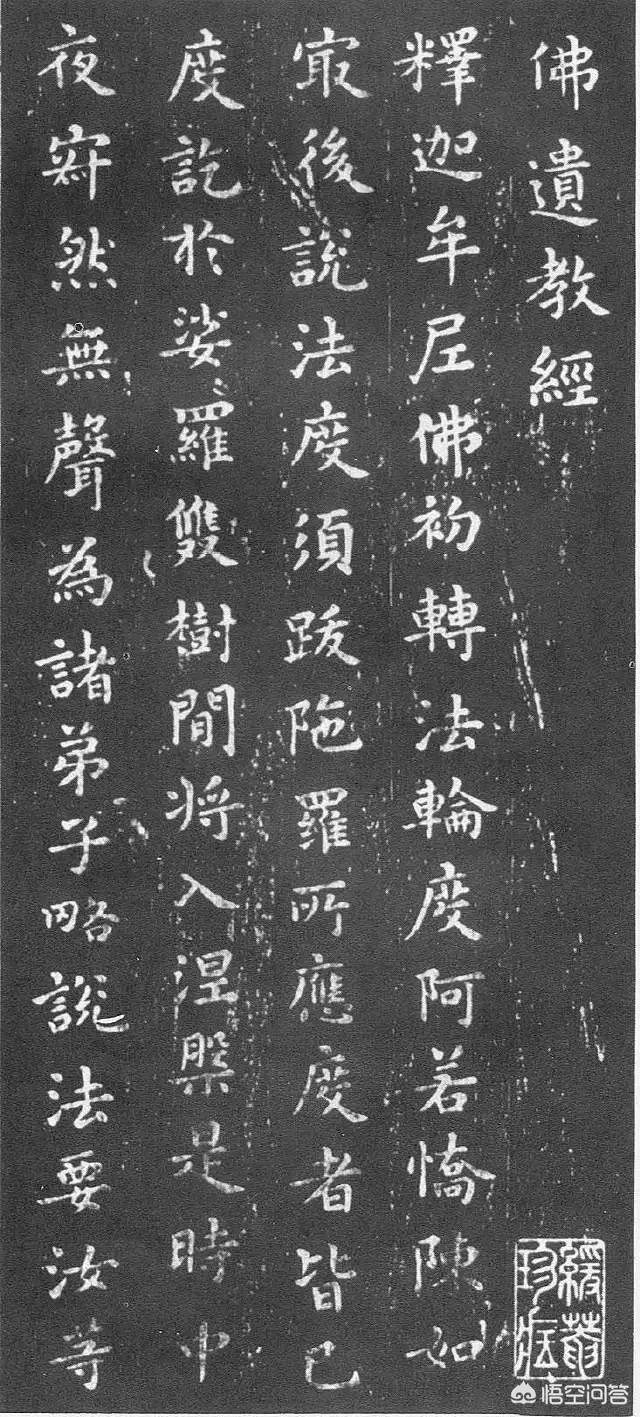 佛遺教經
釋迦牟尼佛初轉法輪度阿若憍陳如
冣後說法度須跋陁羅所應度者皆已
度訖於娑羅雙樹間將入涅槃是時中
夜寂然無聲為諸弟子略說法要汝等
悟空问答